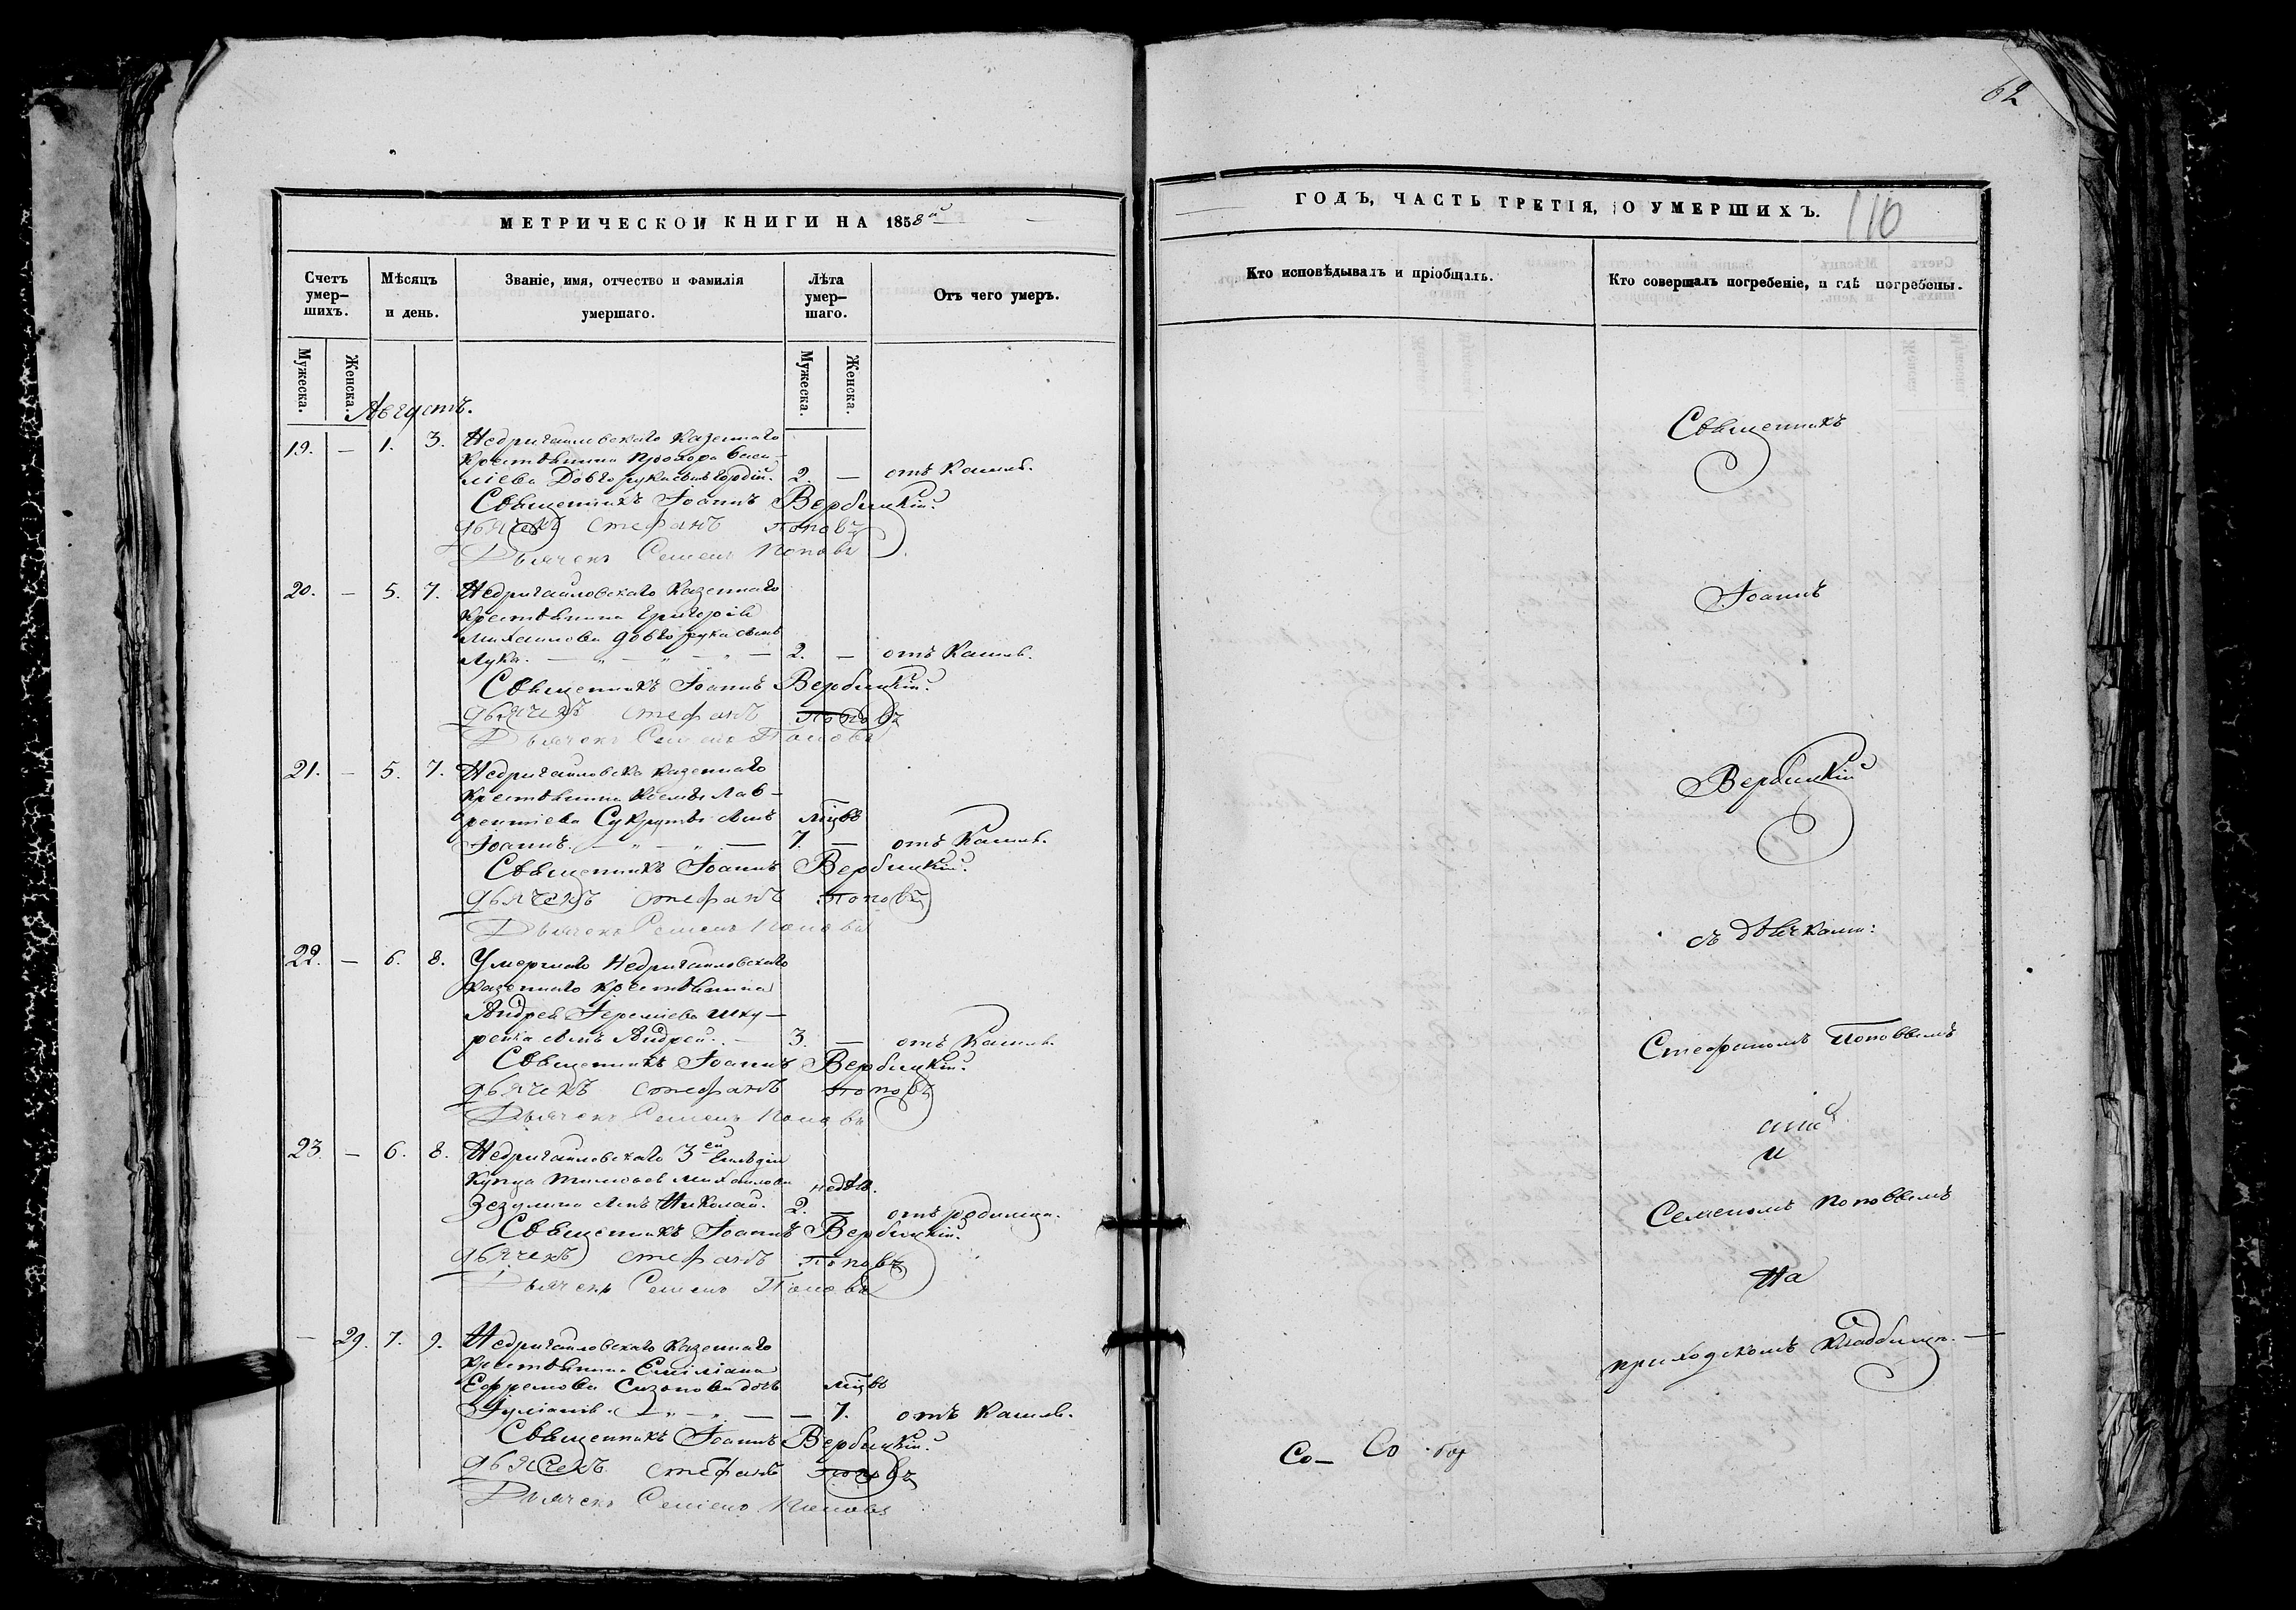 62
МЕТРИЧЕСКОЙ КНИГИ НА 1858й
ГОДЪ, ЧАСТЬ ТРЕТІЯ, О УМЕРШИХЪ.
110
Счетъ умер-шихъ.
Мѣсяцъ и день.
Званіе, имя, отчество и фамилія умершаго.
Лѣта умер-шаго.
Отъ чего умеръ.
Кто исповѣдывалъ и пріобщалъ.
Кто совершалъ погребеніе, и гдѣ погребены.
Мужеска.
Женска.
Мужеска.
Женска.
Августъ.
19. — 1. 3. Недригайловскаго казеннаго
крестьянина Прохора Васи-
ліева Довгорука сынъ Гордій. 2. — отъ кашля.
Священникъ Іоаннъ Вербицкій.
Дьячекъ Стефанъ Поповъ
Дьячекъ Семенъ Поповъ
20. — 5. 7. Недригайловскаго казеннаго
крестьянина Григорія
Михаилова Довгорука сынъ
Лука. 2. — отъ кашля.
Священникъ Іоаннъ Вербицкій.
Дьячекъ Стефанъ Поповъ
Дьячекъ Семенъ Поповъ
21. — 5. 7. Недригайловско казеннаго
крестьянина Космы Лав-
рентіева сынъ мцвъ
Іоаннъ. 7. — отъ кашля.
Священникъ Іоаннъ Вербицкій.
Дьячекъ Стефанъ Поповъ
Дьячекъ Семенъ Поповъ
22. — 6. 8. Умершаго Недригайловскаго
казеннаго крестьянина
Андрея Іереміева Шку-
сынъ Андрей. 3. — отъ кашля.
Священникъ Іоаннъ Вербицкій.
Дьячекъ Стефанъ Поповъ
Дьячекъ Семенъ Поповъ
23. — 6. 8. Недригайловскаго 3ей гильдіи
купца Тимофея Михаилова недѣл.
сынъ Николай. 2. — отъ родимца.
Священникъ Іоаннъ Вербицкій.
Дьячекъ Стефанъ Поповъ
Дьячекъ Семенъ Поповъ
— 29. 7. 9. Недригайловскаго казеннаго
крестьянина Емиліана
Ефремова Сизонова дочь мцвъ
Іуліанія. — 7. отъ кашля.
Священникъ Іоаннъ Вербицкій.
Дьячекъ Стефанъ Поповъ
Дьячекъ Семенъ Поповъ
Священникъ
Іоаннъ
Вербицкій
съ дьячками:
Стефаномъ Поповвымъ
и
Семеномъ Поповвымъ
на
приходскомъ кладбищѣ. —
Со— Со